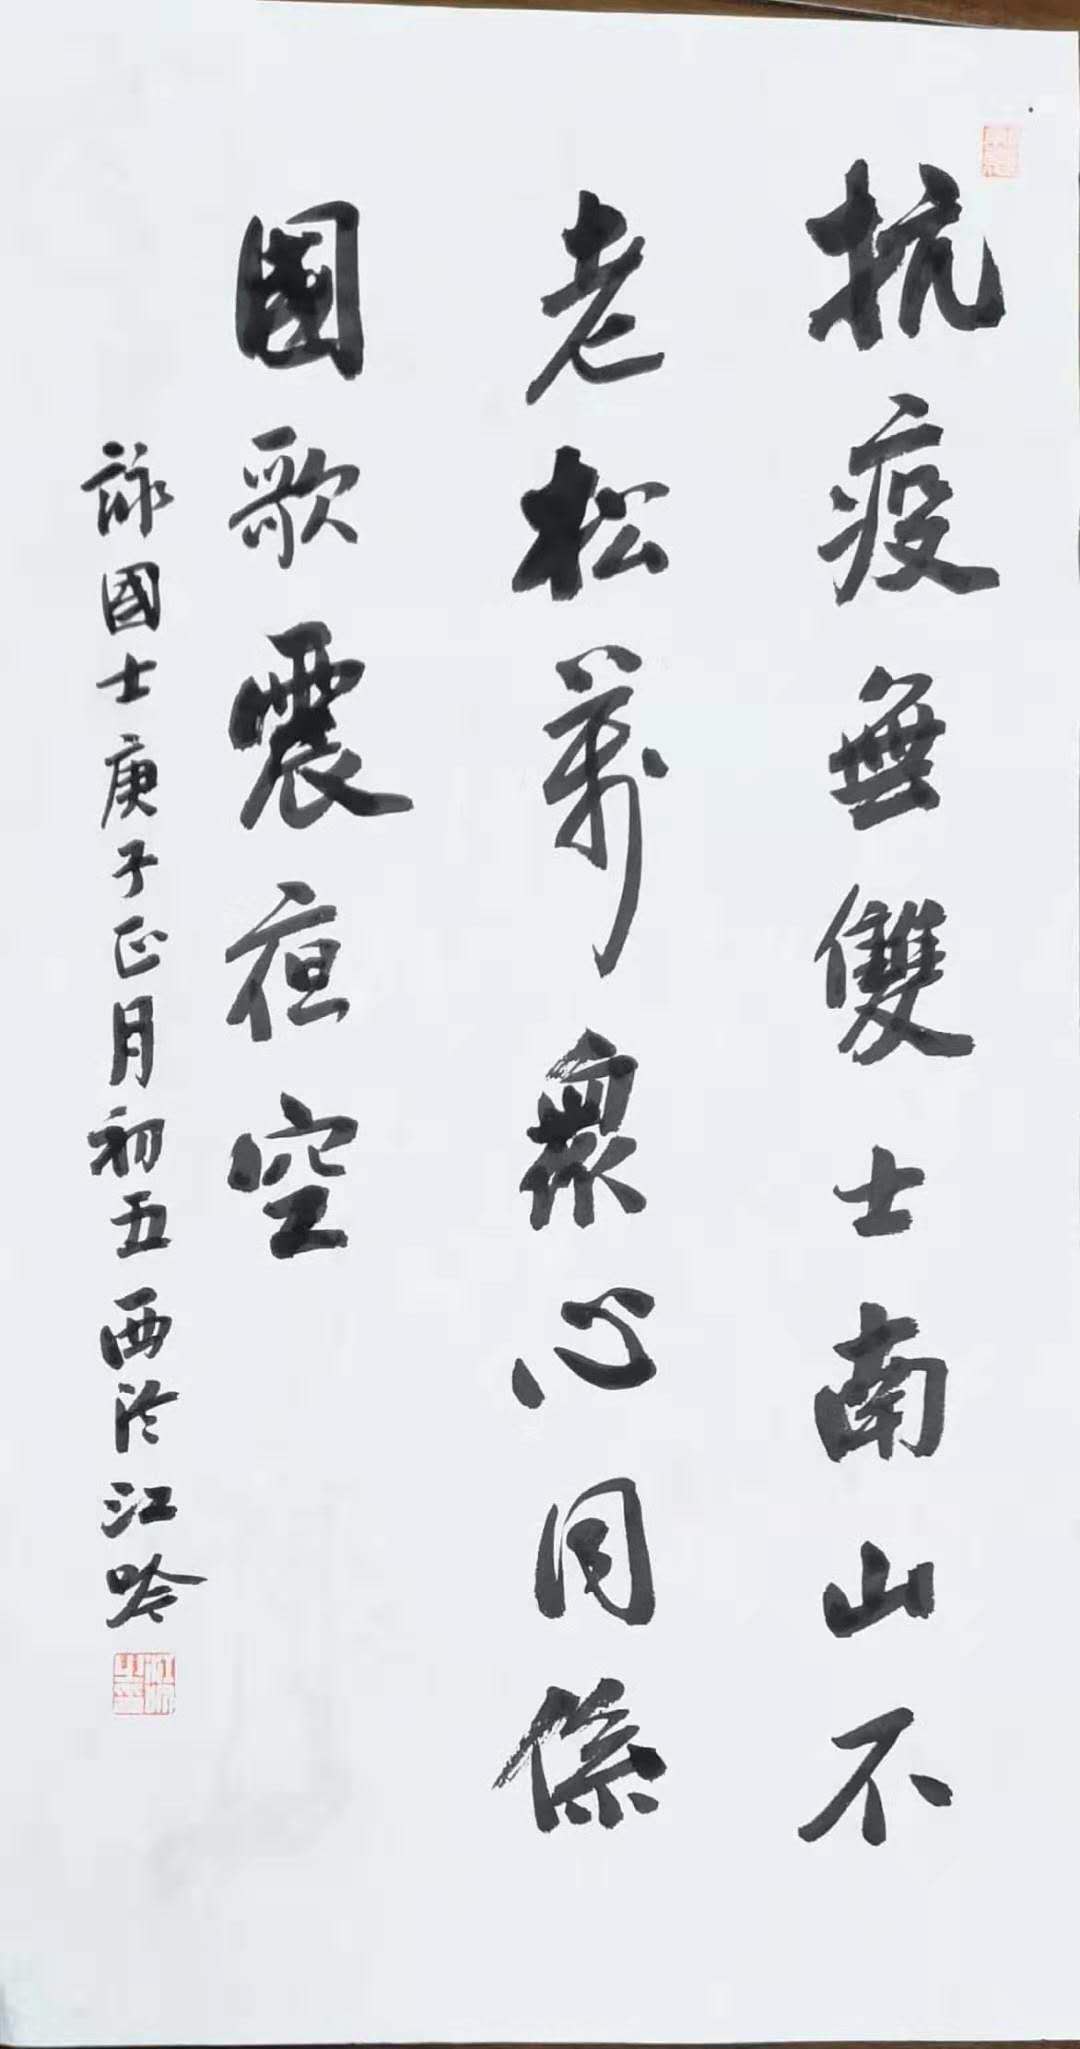 抗疫無雙士南山不
老松萬衆心同係
國歌震夜空
詠國士庚子正月初五西泠江吟